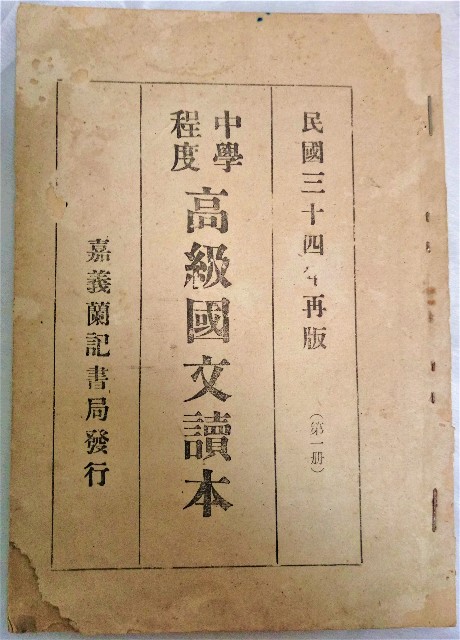 民國三十四年再版
（第一册）
中學程度
高級國文讀本
嘉義蘭記書局發行